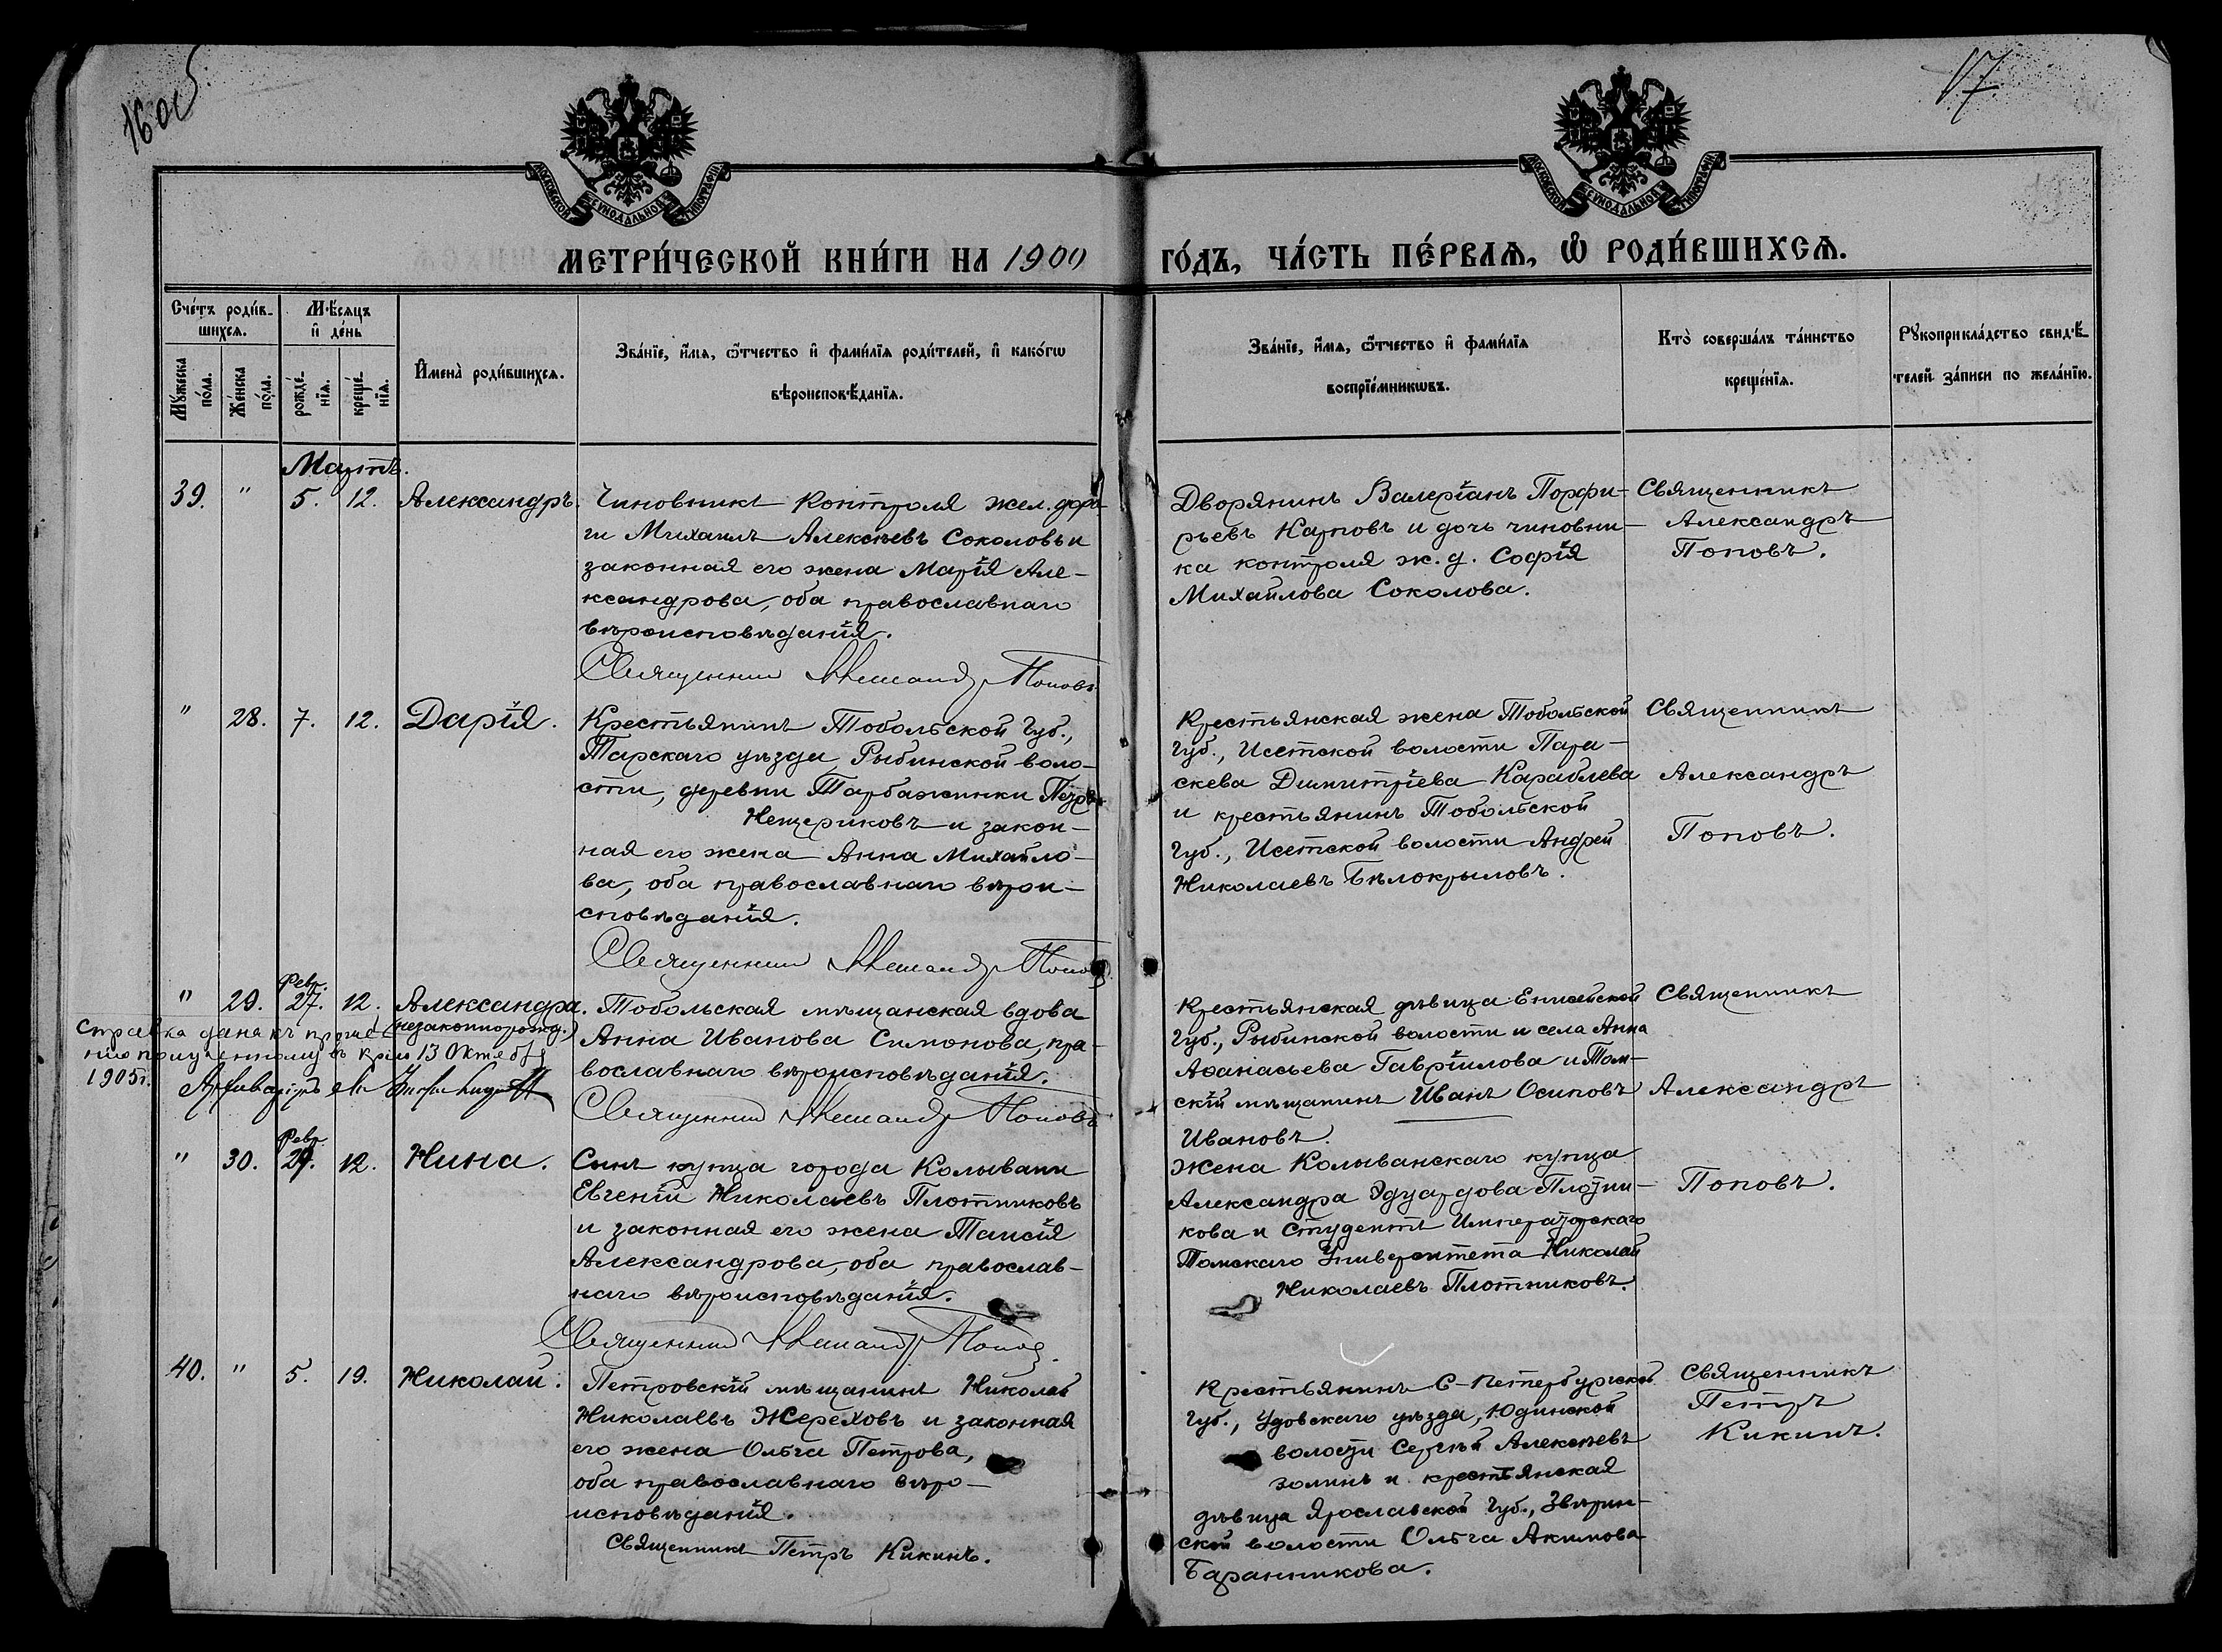 16 об
17
МОСКОВСКОЙ СУНОДАЛЬНОЙ ТИПОГРАФІИ
МОСКОВСКОЙ СУНОДАЛЬНОЙ ТИПОГРАФІИ
МЕТРИ́ЧЕСКОЙ КНИ́ГИ НА 1900
ГО́ДЪ, ЧА́СТЬ ПЕ́РВАѦ, Ѡ҆ РОДИ́ВШИХСѦ.
Сче́тъ роди́в-
шихсѧ.
Мѣ́сѧцъ
и҆ де́нь
Мꙋ́жеска
по́ла.
Же́нска
по́ла.
рожде́-
нїѧ.
креще́-
нїѧ.
И҆мена̀ роди́вшихсѧ.
Зва́нїе, и҆́мѧ, ѻ҆́тчество и҆ фами́лїѧ роди́телей, и҆ како́гѡ
вѣроисповѣ́данїѧ.
Зва́нїе, и҆́мѧ, ѻ҆́тчество и҆ фами́лїѧ
воспрїе́мникѡвъ.
Кто̀ соверша́лъ та́инство
креще́нїѧ.
Рꙋкоприкла́дство свидѣ́-
телей за́писи по жела́нїю.
Мартъ.
39. " 5. 12. Александръ.
Чиновникъ контроля жел. доро-
ги Михаилъ Алексѣевъ Соколовъ и
законная его жена Марія Але-
ксандрова, оба православнаго
вѣроисповѣданія.
Священникъ Александръ Поповъ
Дворянинъ Валеріанъ Порфи-
рьевъ Карповъ и дочь чиновни-
ка контроля ж. д. Софія
Михайлова Соколова.
Священникъ
Александръ
Поповъ.
" 28. 7. 12. Дарія.
Крестьянинъ Тобольской Губ.,
Тарскаго уѣзда, Рыбинской воло-
сти, деревни Тарбажинки Петръ
Нещериковъ и закон-
ная его жена Анна Михайло-
ва, оба православнаго вѣрои-
сповѣданія.
Священникъ Александръ Поповъ
Крестьянская жена Тобольской
Губ., Исетской волости Пара-
скева Димитріева Караблева
и крестьянинъ Тобольской
Губ., Исетской волости Андрей
Николаевъ Бѣлокрыловъ.
Священникъ
Александръ
Поповъ.
Февр.
" 29. 27. 12. Александра.
(незаконнорожд.)
Тобольская мѣщанская вдова
Анна Иванова Симонова, пра-
вославнаго вѣроисповѣданія.
Священникъ Александръ Поповъ
Справка дана къ проше-
нію полученному въ 13 Октября
1905 г.
Архиваріусъ
Крестьянская дѣвица Енисейской
Губ., Рыбинской волости и села Анна
Аѳанасьева Гавріилова и Том-
скій мѣщанинъ Иванъ Осиповъ
Ивановъ.
Священникъ
Александръ
Поповъ.
Февр.
" 30. 29. 12. Нина.
Сынъ купца города Колывани
Евгеній Николаевъ Плотниковъ
и законная его жена Таисія
Александрова, оба православ-
наго вѣроисповѣданія.
Священникъ Александръ Поповъ.
Жена Колыванскаго купца
Александра Эдуардова Плотни-
кова и студентъ Императорскаго
Томскаго Университета Николай
Николаевъ Плотниковъ.
40. " 5. 19. Николай.
Петровскій мѣщанинъ Николай
Николаевъ Жереховъ и законная
его жена Ольга Петрова,
оба православнаго вѣро-
исповѣданія.
Священникъ Петръ Кикинъ.
Крестьянинъ С-Петербургской
Губ., Гдовскаго уѣзда, Юдинской
волости Сергѣй Алексѣевъ
Золинъ и крестьянская
дѣвица Ярославской Губ., Звѣрин-
ской волости Ольга Акимова
Баранникова.
Священникъ
Петръ
Кикинъ.